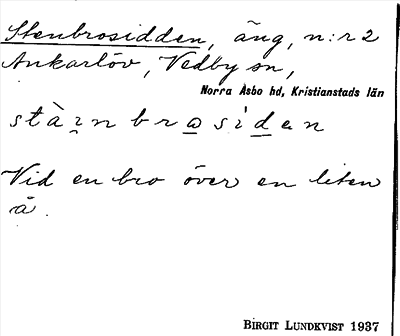 Stenbrosidden, äng, n:r 2
Ankarlöv, Vedby sn,
Norra Åsbo hd, Kristianstads län
Vid en bro över en liten
å.
BIRGIT LUNDKVIST 1937